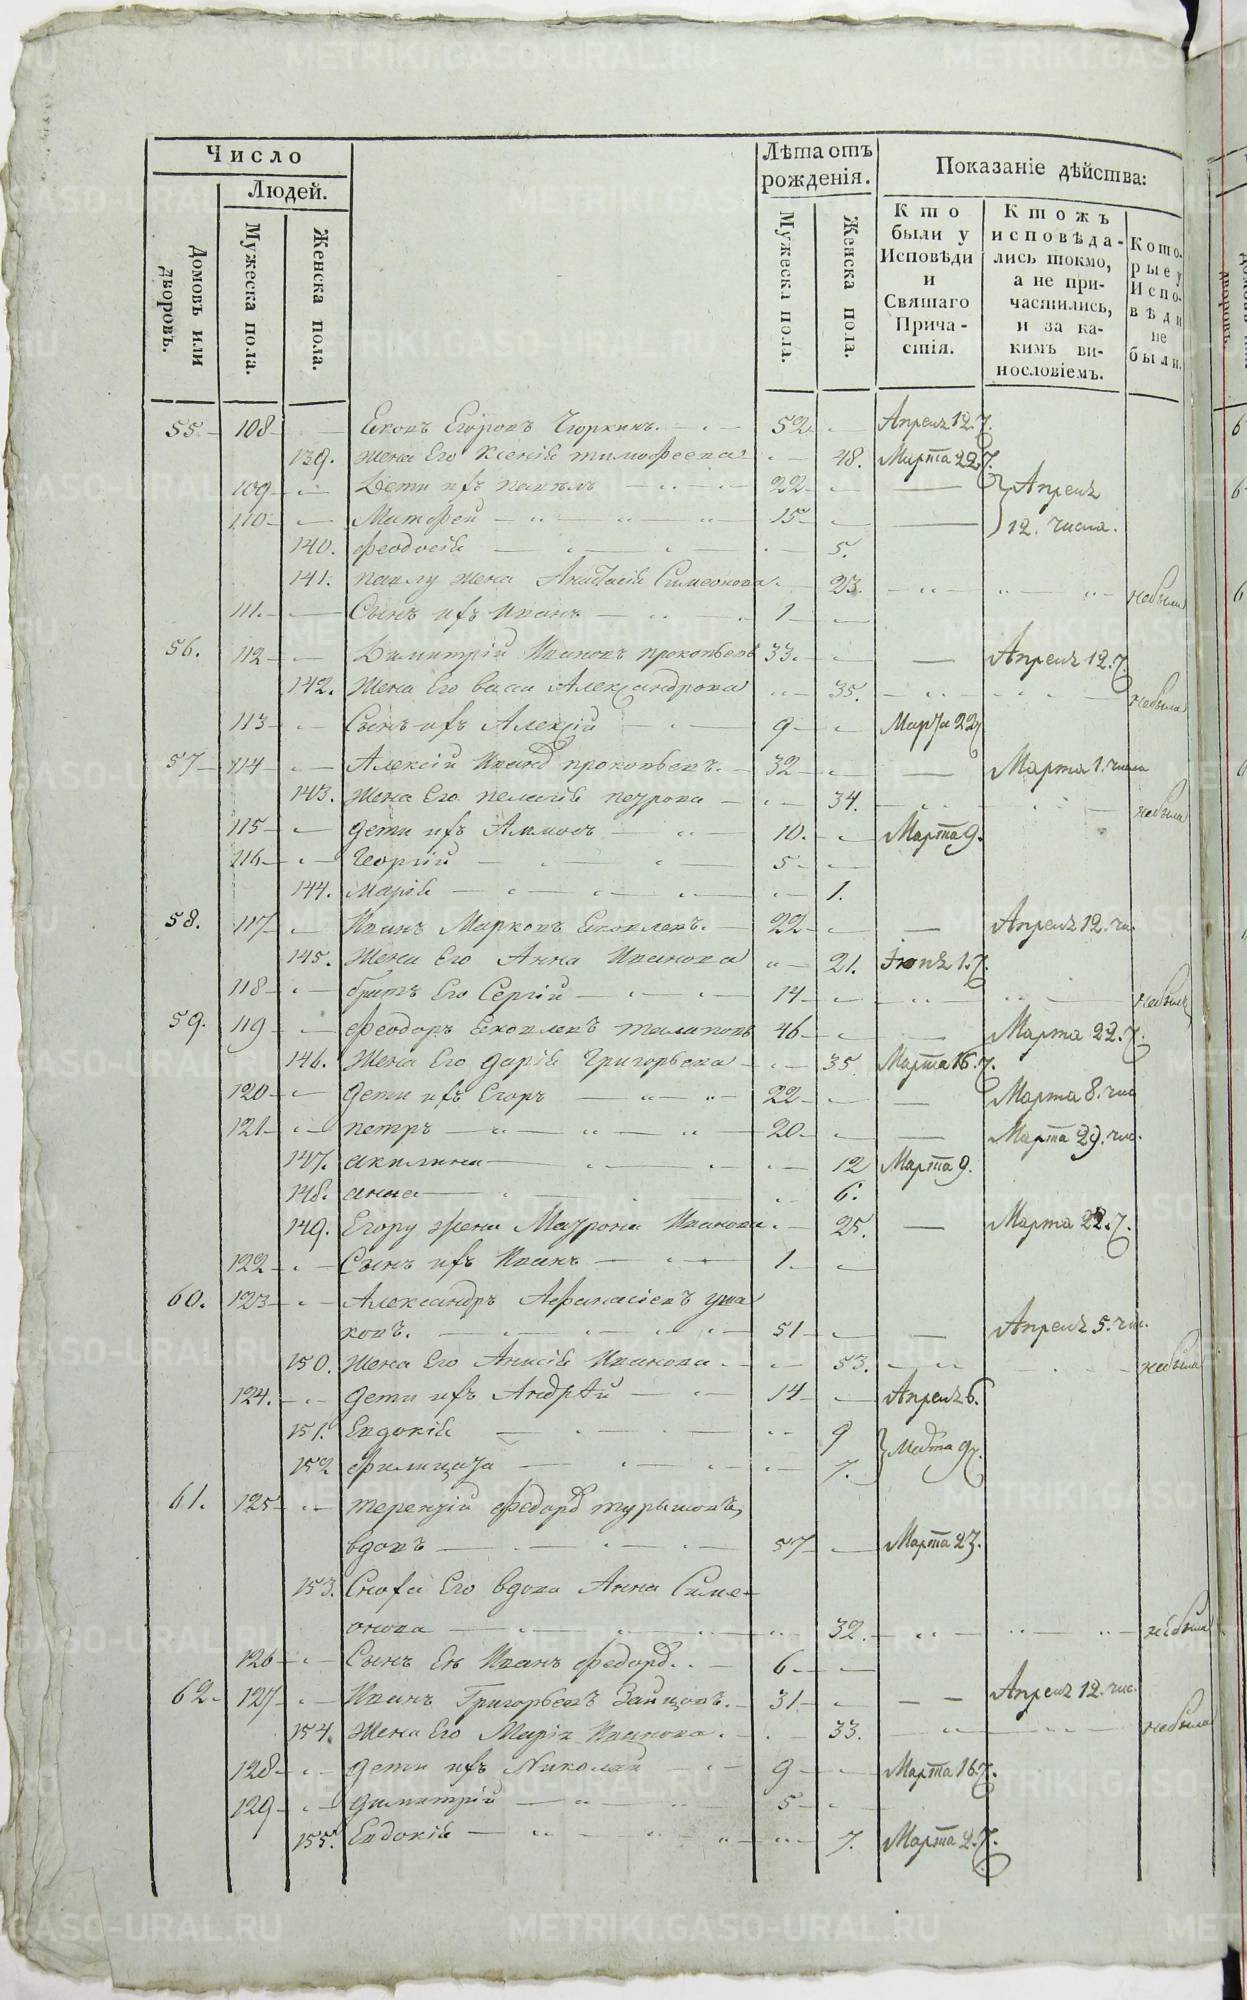 Число
Людей.
Домовъ или дворовъ.
Мужеска пола.
Женска пола.
Лѣта отъ рожденія.
Мужеска пола.
Женска пола.
Показаніе дѣйства:
Кто были у Исповѣди и Святаго Причастія.
Ктожъ исповѣдались токмо, а не причастились, и за какимъ винословіемъ.
Которые у Исповѣди не были.
55 108 Егоровъ Чюркинъ. 52 Апреля 12.
139. жена Его Ксенія тимофеева 48. Марта 22
109 Дети ихъ павелъ 22 Апреля
110 Матфей 15 12. числа.
140. феодосія 5.
141. павлу жена Анастасія Симеонова 23. небыла
111. Сынъ ихъ Иванъ 1
56. 112 Димитрій Ивановъ прокопьевъ 33. Апреля 12.
142. жена Его васса Александрова 35. небыла
113 Сынъ ихъ Алексій 9 Марта 22
57 114 Алексій Иванов прокопьевъ. 32 Марта 1. числа
143. жена Его пелагія петрова 34. небыла
115 дети ихъ Аммосъ 10. Марта 9.
116 Георгій 5
144. марія 1.
58. 117 Иванъ Марковъ Яковлевъ. 22 Апреля 12. чи.
145. жена Его Анна Иванова 21. Іюня 1.
118 братъ Его Сергій 14 небылъ
59. 119 феодоръ Яковлевъ 46 Марта 22.
146. жена Его дарія Григорьева 35. Марта 16.
120 дети ихъ Егоръ 22 Марта 8. чис
121 петръ 20 Марта 29. чис.
147. акилина 12 Марта 9.
148. анна 6.
149. Егору жена Матрона Иванова 25. Марта 22.
122 Сынъ ихъ Иванъ 1.
60. 123 Александръ Афанасіевъ уша
ковъ. 51 Апреля 5. чис.
150. жена Его Анисія Иванова 53. небыла
124. дети ихъ Андрѣй 14 Апреля 6.
151. Евдокія 9 Марта 9
152 филицата 7.
61. 125 терентій федоров турыгинъ,
вдовъ 57 Марта 23.
153. Сноха Его вдова Анна Симе-
онова 32. небыла
126 Сынъ Ея Иванъ федоров. 6
62. 127 Иванъ Григорьевъ Зайцовъ. 31 Апреля 12. чис.
154. жена Его Марія Иванова. 33. небыла
128 дети ихъ Николай 9 Марта 16.
129 димитрій 5
155. Евдокія 7. Марта 2.
METRIKI.GASO-URAL.RU